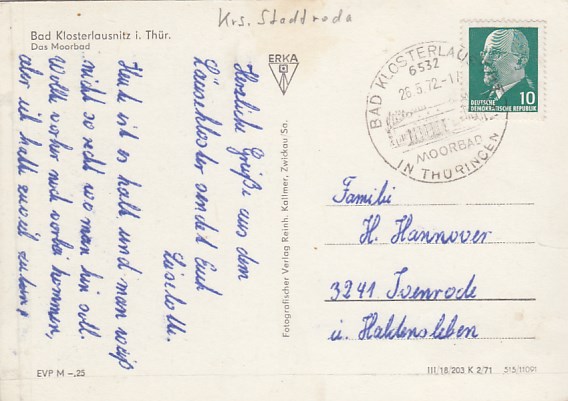 Krs. Stadtroda
Bad Klosterlausnitz i. Thür.
Das Moorbad
Herzliche Grüße aus dem
Lausekloster sendet Euch
Liselotte.
Heute ist es kalt und man weiß
nicht so recht wo man hin soll.
Wollte vorher noch vorbei kommen,
aber ich hatte zuviel zu tun.
ERKA
Fotografischer Verlag Reinh. Kallmer, Zwickau/Sa.
BAD KLOSTERLAUSNITZ
6532
26.5.72-1
MOORBAD
IN THÜRINGEN
DEUTSCHE
DEMOKRATISCHE REPUBLIK
10
Familie
H. Hannover
3241 Ivenrode
ü. Haldensleben
EVP M –,25
III/18/203 K 2/71 515/11091